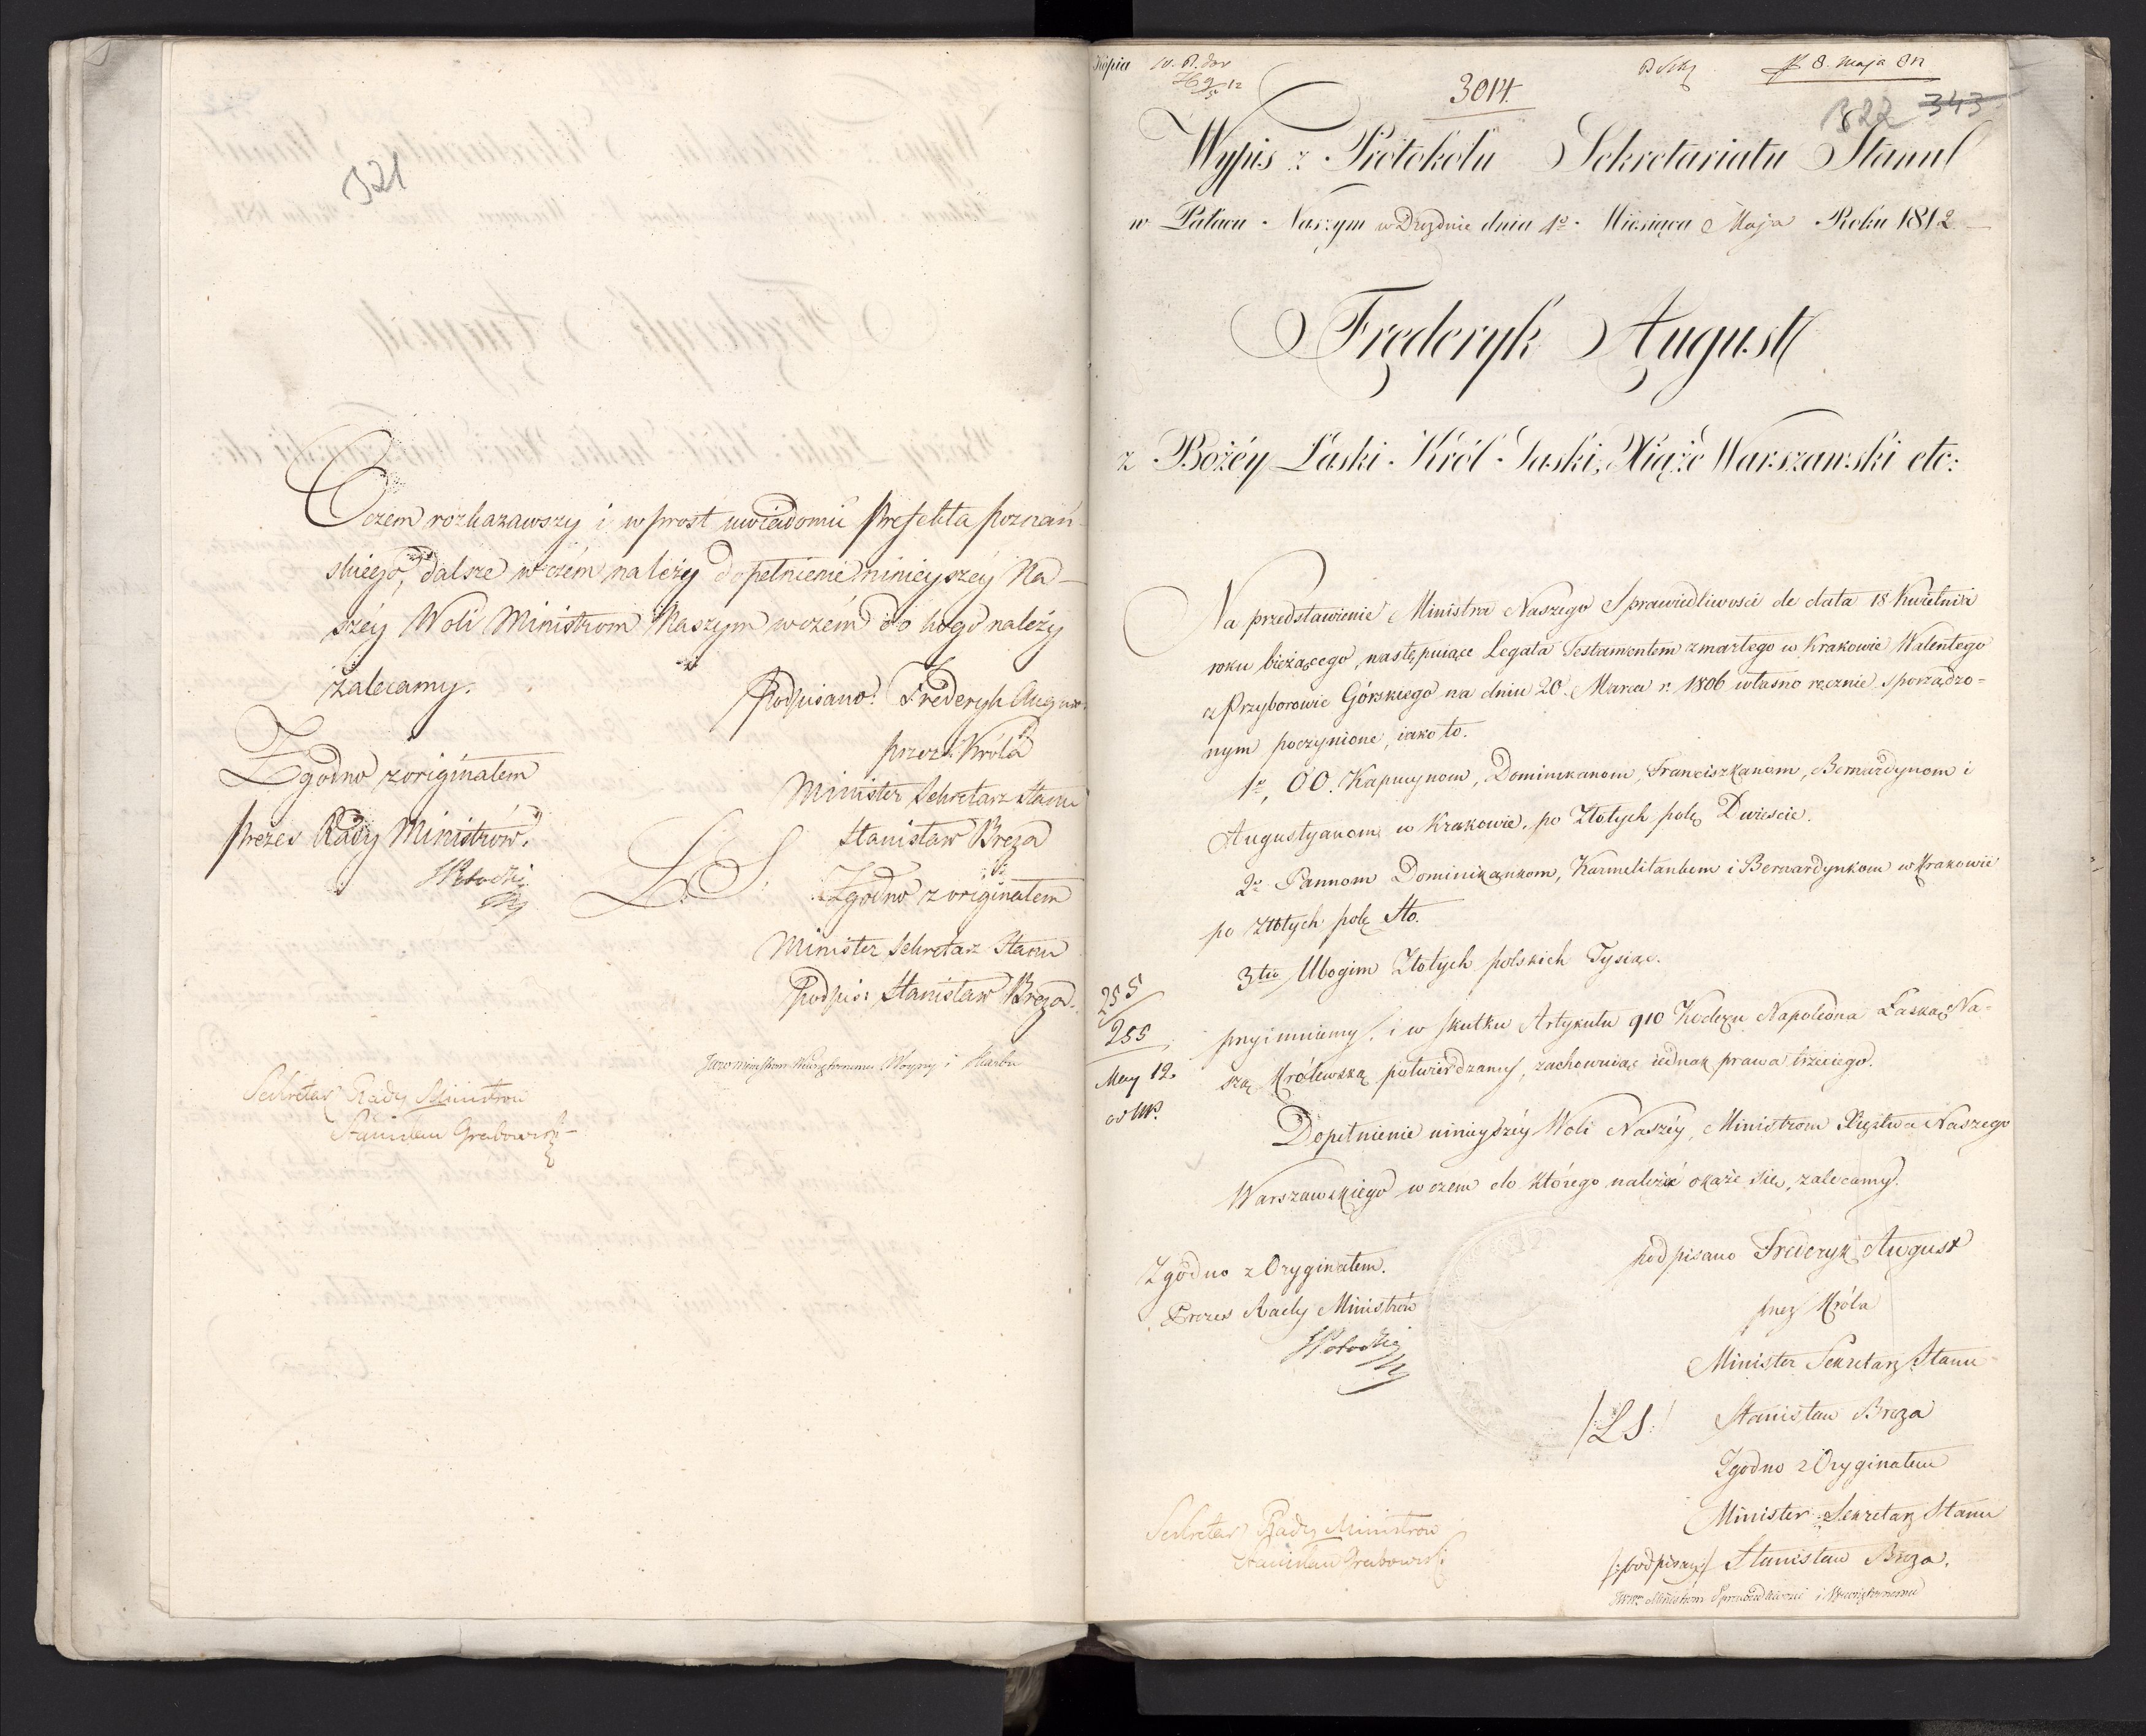 321
O czem rozkazawszy i wprost uwiadomić Prefekta Poznań-
skiego, dalsze w czém należy dopełnienie ninieyszéy Na-
széy Woli Ministrom Naszym w czém do kogo należy
zalecamy.
Podpisano: Frederyk August
przez Króla
Minister Sekretarz Stanu
Stanisław Breza
L.S.
Zgodno z originałem
Minister Sekretarz Stanu
podpis: Stanisław Breza.
Zgodno z originałem
Prezes Rady Ministrów.
SPotocki
JWW Ministrom Wewnętrznemu Woyny i Skarbu
Sekretarz Rady Ministrow
Stanisław Grabowski
Kopia
3014.
8. Maja 812
322 343
Wypis z Protokołu Sekretariatu Stanu
w Pałacu Naszym w Dreźdnie dnia 1o Miesiąca Maja Roku 1812
Fręderyk August
z Bożéy Łaski Król Saski, Xiąże Warszawski etc:
Na przedstawienie Ministra Naszego Sprawiedliwości de data 18 Kwietnia
roku bieżącego, następuiące Legata Testamentem zmarłego w Krakowie Walentego
z Przyborowic Górskiego na dniu 20. Marca r. 1806 własno ręcznie sporządzo-
nym poczynione, iako to.
1o, OO. Kapucynom, Dominikanom, Franciszkanom, Bernardynom i
Augustyanom w Krakowie, po Złotych polę Dwieście.
2o Pannom Dominikankom, Karmelitankom i Bernardynkom w Krakowie
po Złotych polę Sto.
3tio Ubogim Złotych polskich Tysiąc.
255
255
May 12.
przyimuiemy, i w skutku Artykułu 910 Kodexu Napoleona Łaską Na-
szą Królewską potwierdzamy, zachowuiąc iednak prawa trzeciego.
Dopełnienie ninieyszéy Woli Naszéy, Ministrom Xięstwa Naszego
Warszawskiego w czem do którego należeć okaże się, zalecamy.
podpisano Frederyk August
przez Króla
Minister Sekretarz Stanu
/LS/ Stanisław Breza
Zgodno z Oryginałem
Minister Sekretarz Stanu
/:podpisany/ Stanisław Breza.
JWW Ministrom Sprawiedliwości i Wewnętrznemu
Zgodno z Oryginałem.
Prezes Rady Ministrów
SPotocki
Sekretarz Rady Ministrow
Stanisław Grabowski